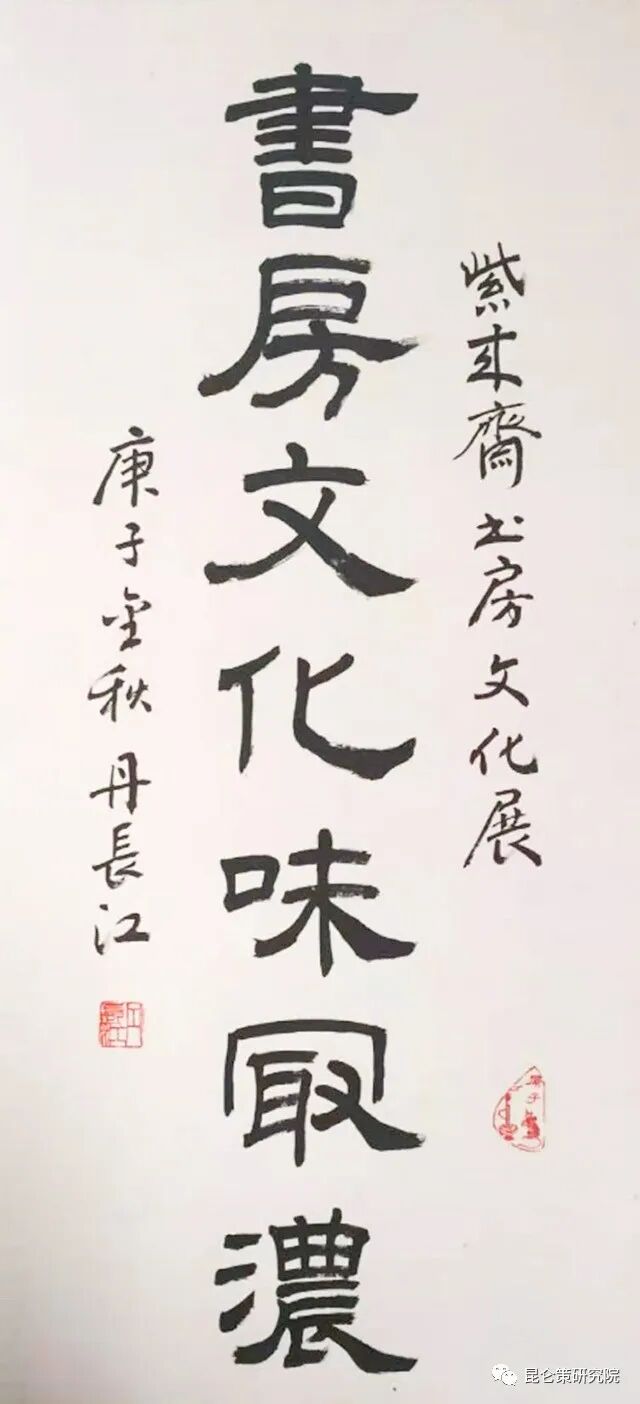 紫来齋书房文化展
書房文化味冣濃
庚子金秋丹長江
庚子
昆仑策研究院